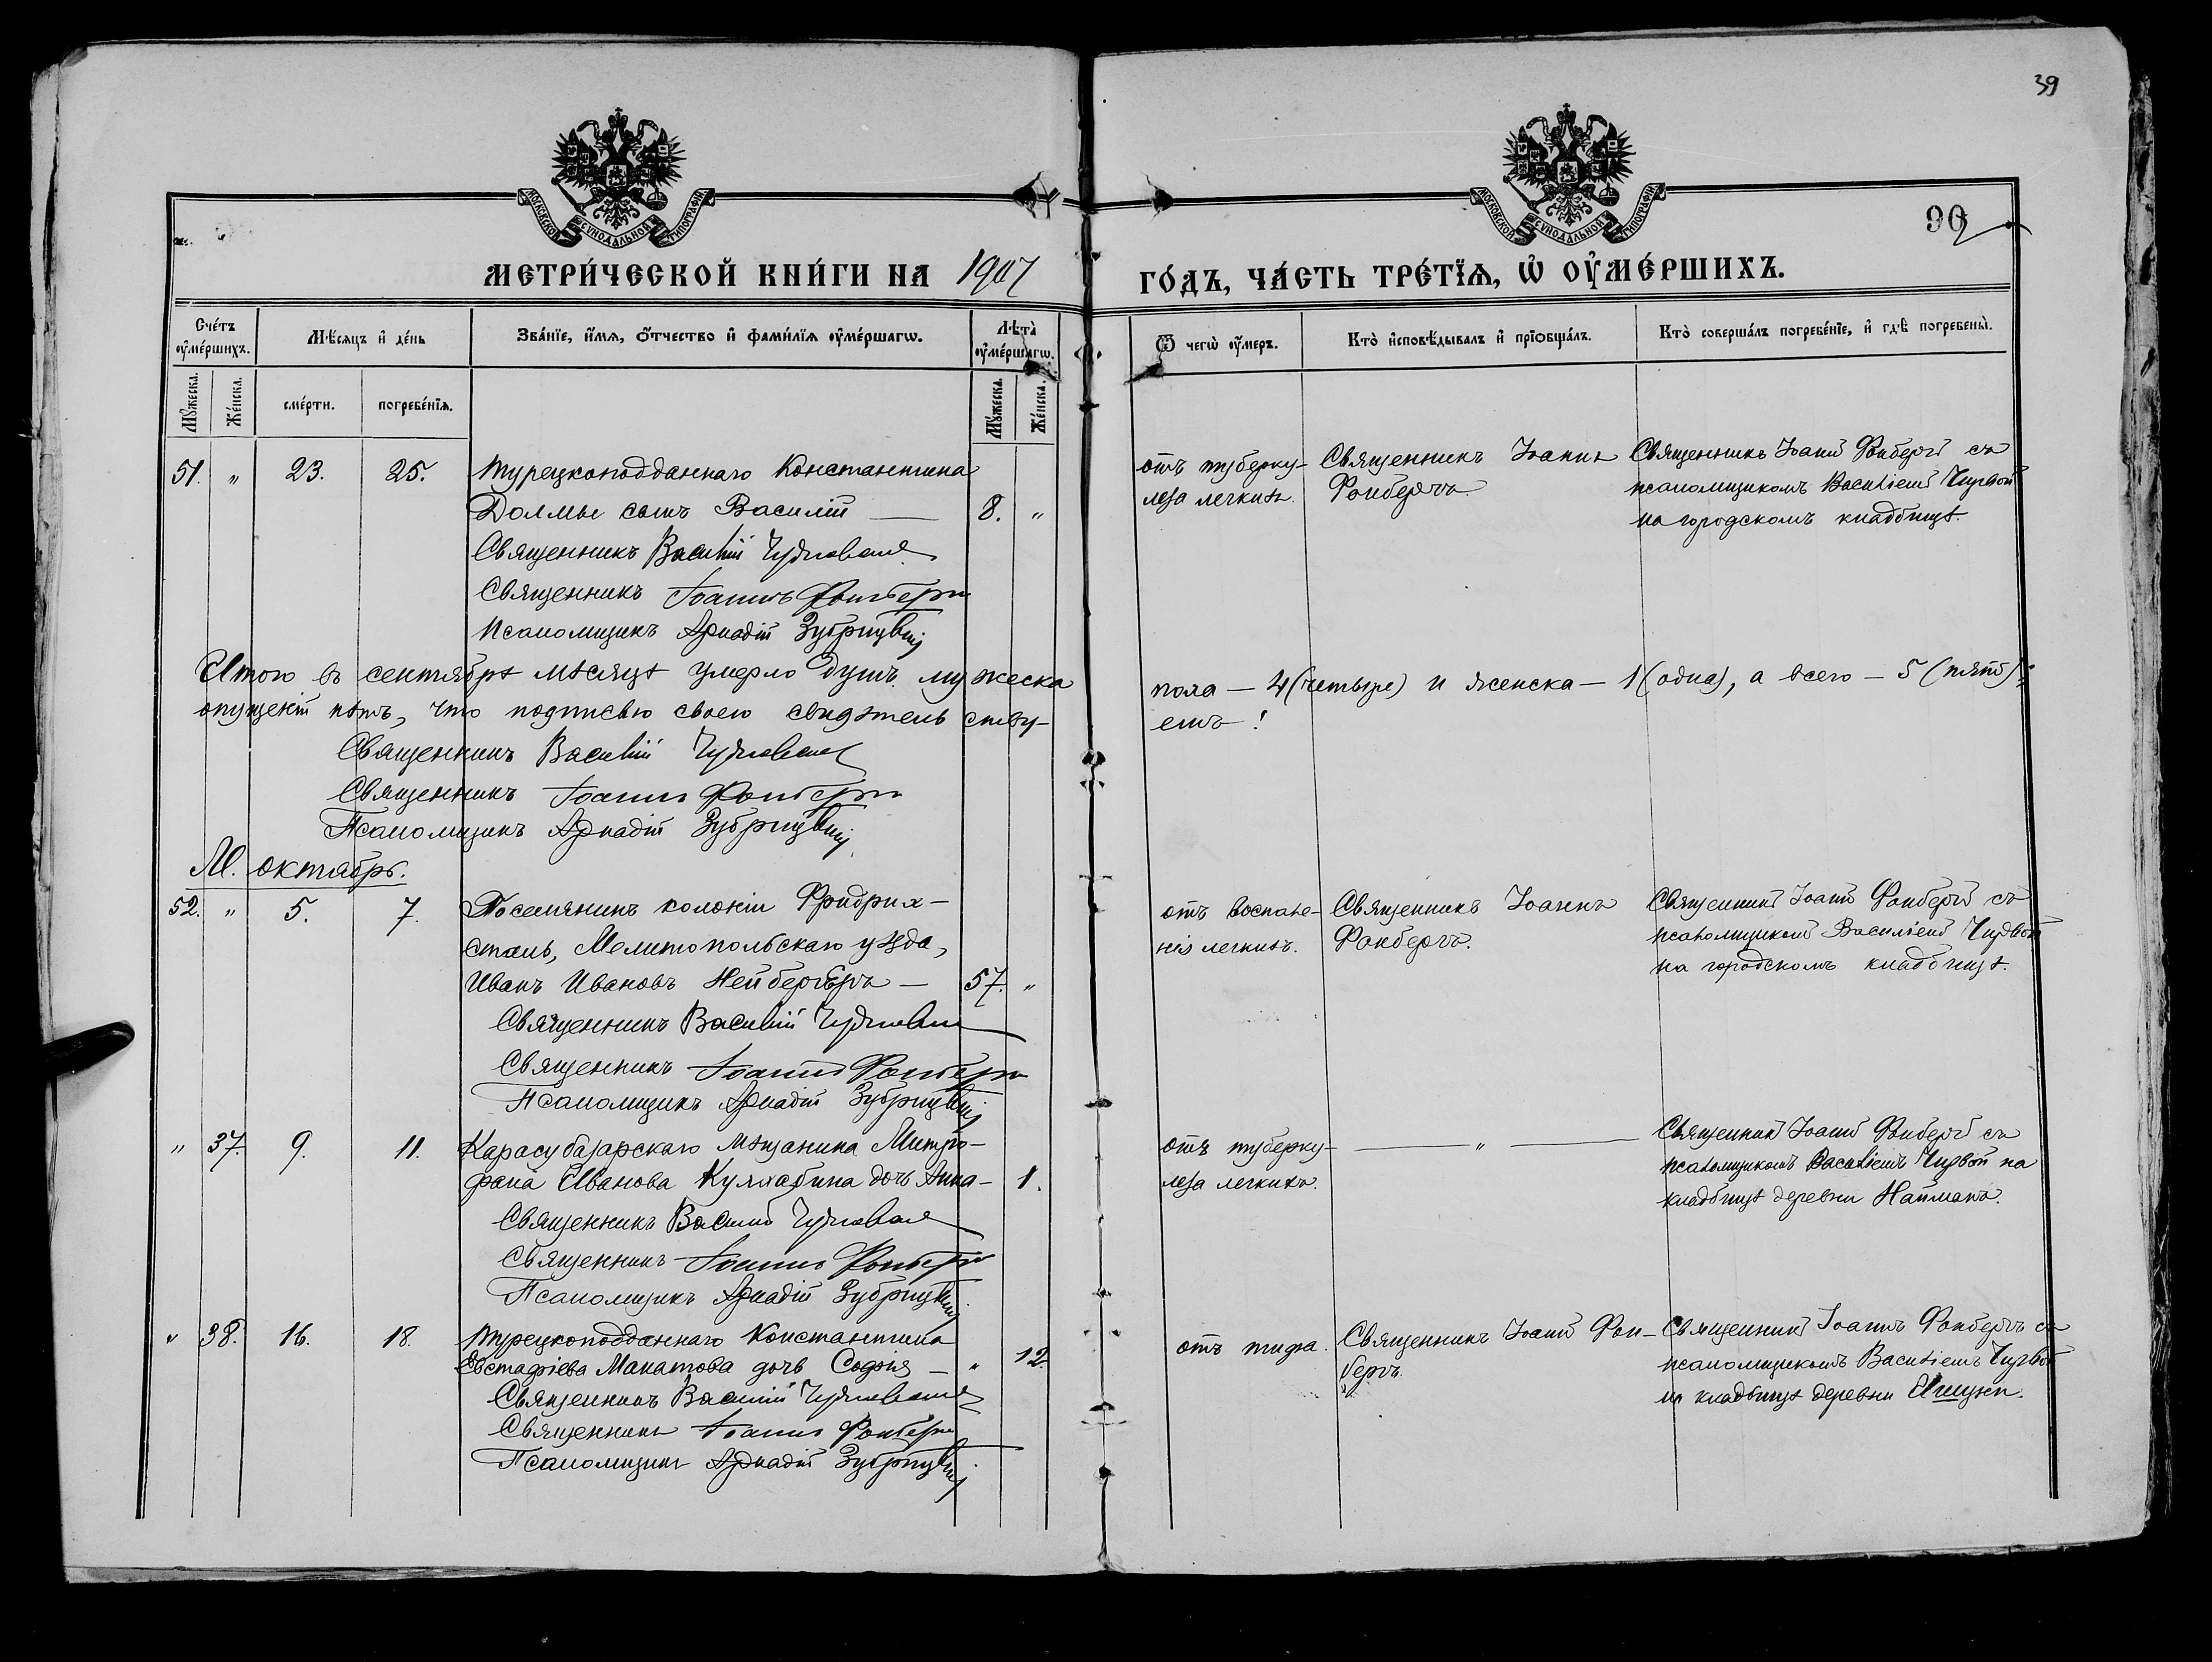 39
МОСКОВСКОЙ СѴНОДАЛЬНОЙ ТИПОГРАФІИ
МОСКОВСКОЙ СѴНОДАЛЬНОЙ ТИПОГРАФІИ
90
МЕТРИ́ЧЕСКОЙ КНИ́ГИ НА 1907
ГО́ДЪ, ЧА́СТЬ ТРЕ́ТЇѦ, Ѡ҆ ОУ҆МЕ́РШИХЪ.
Сче́тъ оу҆ме́ршихъ.
Мѣ́сяцъ и҆ де́нь
Зва́нїе, и҆́мѧ, ѻ҆́тчество и҆ фами́лїѧ оу҆ме́ршагѡ.
Лѣта̀ оу҆ме́ршагѡ.
Ѿ чегѡ̀ оу҆́меръ.
Кто̀ и҆сповѣ́дывалъ и҆ прїѻбща́лъ.
Кто̀ соверша́лъ погребе́нїе, и҆ гдѣ̀ погребены̀.
Мꙋ́жеска. Же́нска. сме́рти. погребе́нїѧ. Мꙋ́жеска. Же́нска.
51. " 23. 25. Турецкоподданнаго Константина
Долмы сынъ Василій — 8. "
Священникъ Василій
Священникъ Іоаннъ Фонбергъ
Псаломщикъ Аркадій Зубрицкій
отъ туберку-
леза легкихъ.
Священникъ Іоаннъ
Фонбергъ.
Священникъ Іоаннъ Фонбергъ съ
псаломщикомъ Василіемъ
на городскомъ кладбищѣ.
Итого въ сентябрѣ мѣсяцѣ умерло душъ мужеска пола — 4 (четыре) и женска — 1 (одна), а всего — 5 (пять);
опущеній нѣтъ, что подписью своею свидѣтельству- етъ!
Священникъ Василій
Священникъ Іоаннъ Фонбергъ
Псаломщикъ Аркадій Зубрицкій
М. октябрь.
52. " 5. 7. Поселянинъ колоніи Фридрих-
сталь, Мелитопольскаго уѣзда,
Иванъ Ивановъ Нейбергеръ — 57. "
Священникъ Василій
Священникъ Іоаннъ Фонбергъ
Псаломщикъ Аркадій Зубрицкій
отъ воспале-
нія легкихъ.
Священникъ Іоаннъ
Фонбергъ.
Священникъ Іоаннъ Фонбергъ съ
псаломщикомъ Василіемъ
на городскомъ кладбищѣ.
" 37. 9. 11. Карасубазарскаго мѣщанина Митро-
фана Иванова дочь Анна — 1.
Священникъ Василій
Священникъ Іоаннъ Фонбергъ
Псаломщикъ Аркадій Зубрицкій
отъ туберку-
леза легкихъ.
— " —
Священникъ Іоаннъ Фонбергъ съ
псаломщикомъ Василіемъ на
кладбищѣ деревни Найманъ.
" 38. 16. 18. Турецкоподданнаго Константина
Евстафіева Макатова дочь Софія — " 12.
Священникъ Василій
Священникъ Іоаннъ Фонбергъ
Псаломщикъ Аркадій Зубрицкій
отъ тифа.
Священникъ Іоаннъ Фон-
бергъ.
Священникъ Іоаннъ Фонбергъ съ
псаломщикомъ Василіемъ
на кладбищѣ деревни Ишунь.